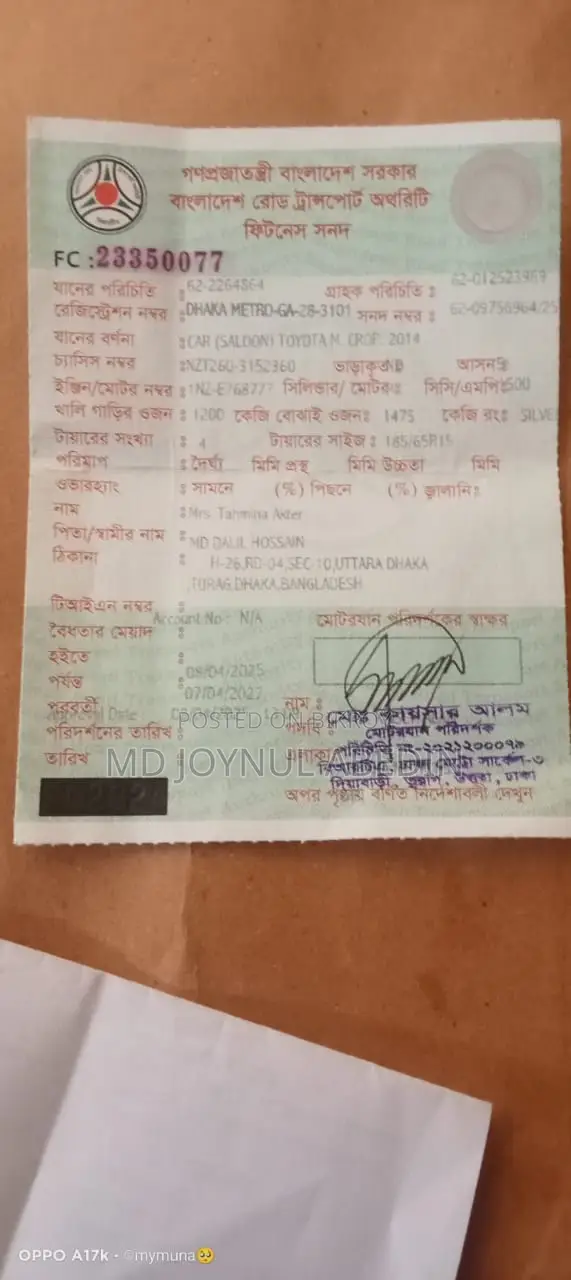 গণপ্রজাতন্ত্রী বাংলাদেশ সরকার
বাংলাদেশ রোড ট্রান্সপোর্ট অথরিটি
ফিটনেস সনদ
FC : 23350077
যানের পরিচিতি : 62-2264864 গ্রাহক পরিচিতি :
রেজিস্ট্রেশন নম্বর : DHAKA METRO-GA-28-3101 সনদ নম্বর :
যানের বর্ণনা : CAR (SALOON) TOYOTA M. CROP. 2014
চ্যাসিস নম্বর : NZT260-3152360 ভাড়াকৃত আসন
ইঞ্জিন/মোটর নম্বর : সিলিন্ডার/ মোটর: সিসি/এমপি:
খালি গাড়ির ওজন : 1200 কেজি বোঝাই ওজন: 1475 কেজি রং: SILVE
টায়ারের সংখ্যা : 4 টায়ারের সাইজ : 185/65R15
পরিমাপ : দৈর্ঘ্য মিমি প্রস্থ মিমি উচ্চতা মিমি
ওভারহ্যাং : সামনে (%) পিছনে (%) জ্বালানি:
নাম : Mrs. Tahmina Akter
পিতা/স্বামীর নাম : MD DALIL HOSSAIN
ঠিকানা : H-26,RD-04,SEC-10,UTTARA DHAKA
,TURAG,DHAKA,BANGLADESH
টিআইএন নম্বর :
Account No : N/A
মোটরযান পরিদর্শকের স্বাক্ষর
বৈধতার মেয়াদ :
হইতে : 08/04/2025
পর্যন্ত : 07/04/2027
পরবর্তী
পরিদর্শনের তারিখ :
তারিখ :
নাম :
মোটরযান পরিদর্শক
এলাকা
অপর পৃষ্ঠায় বর্ণিত নির্দেশাবলী দেখুন
POSTED ON
MD JOYNUL
OPPO A17k · ©mymuna🥺